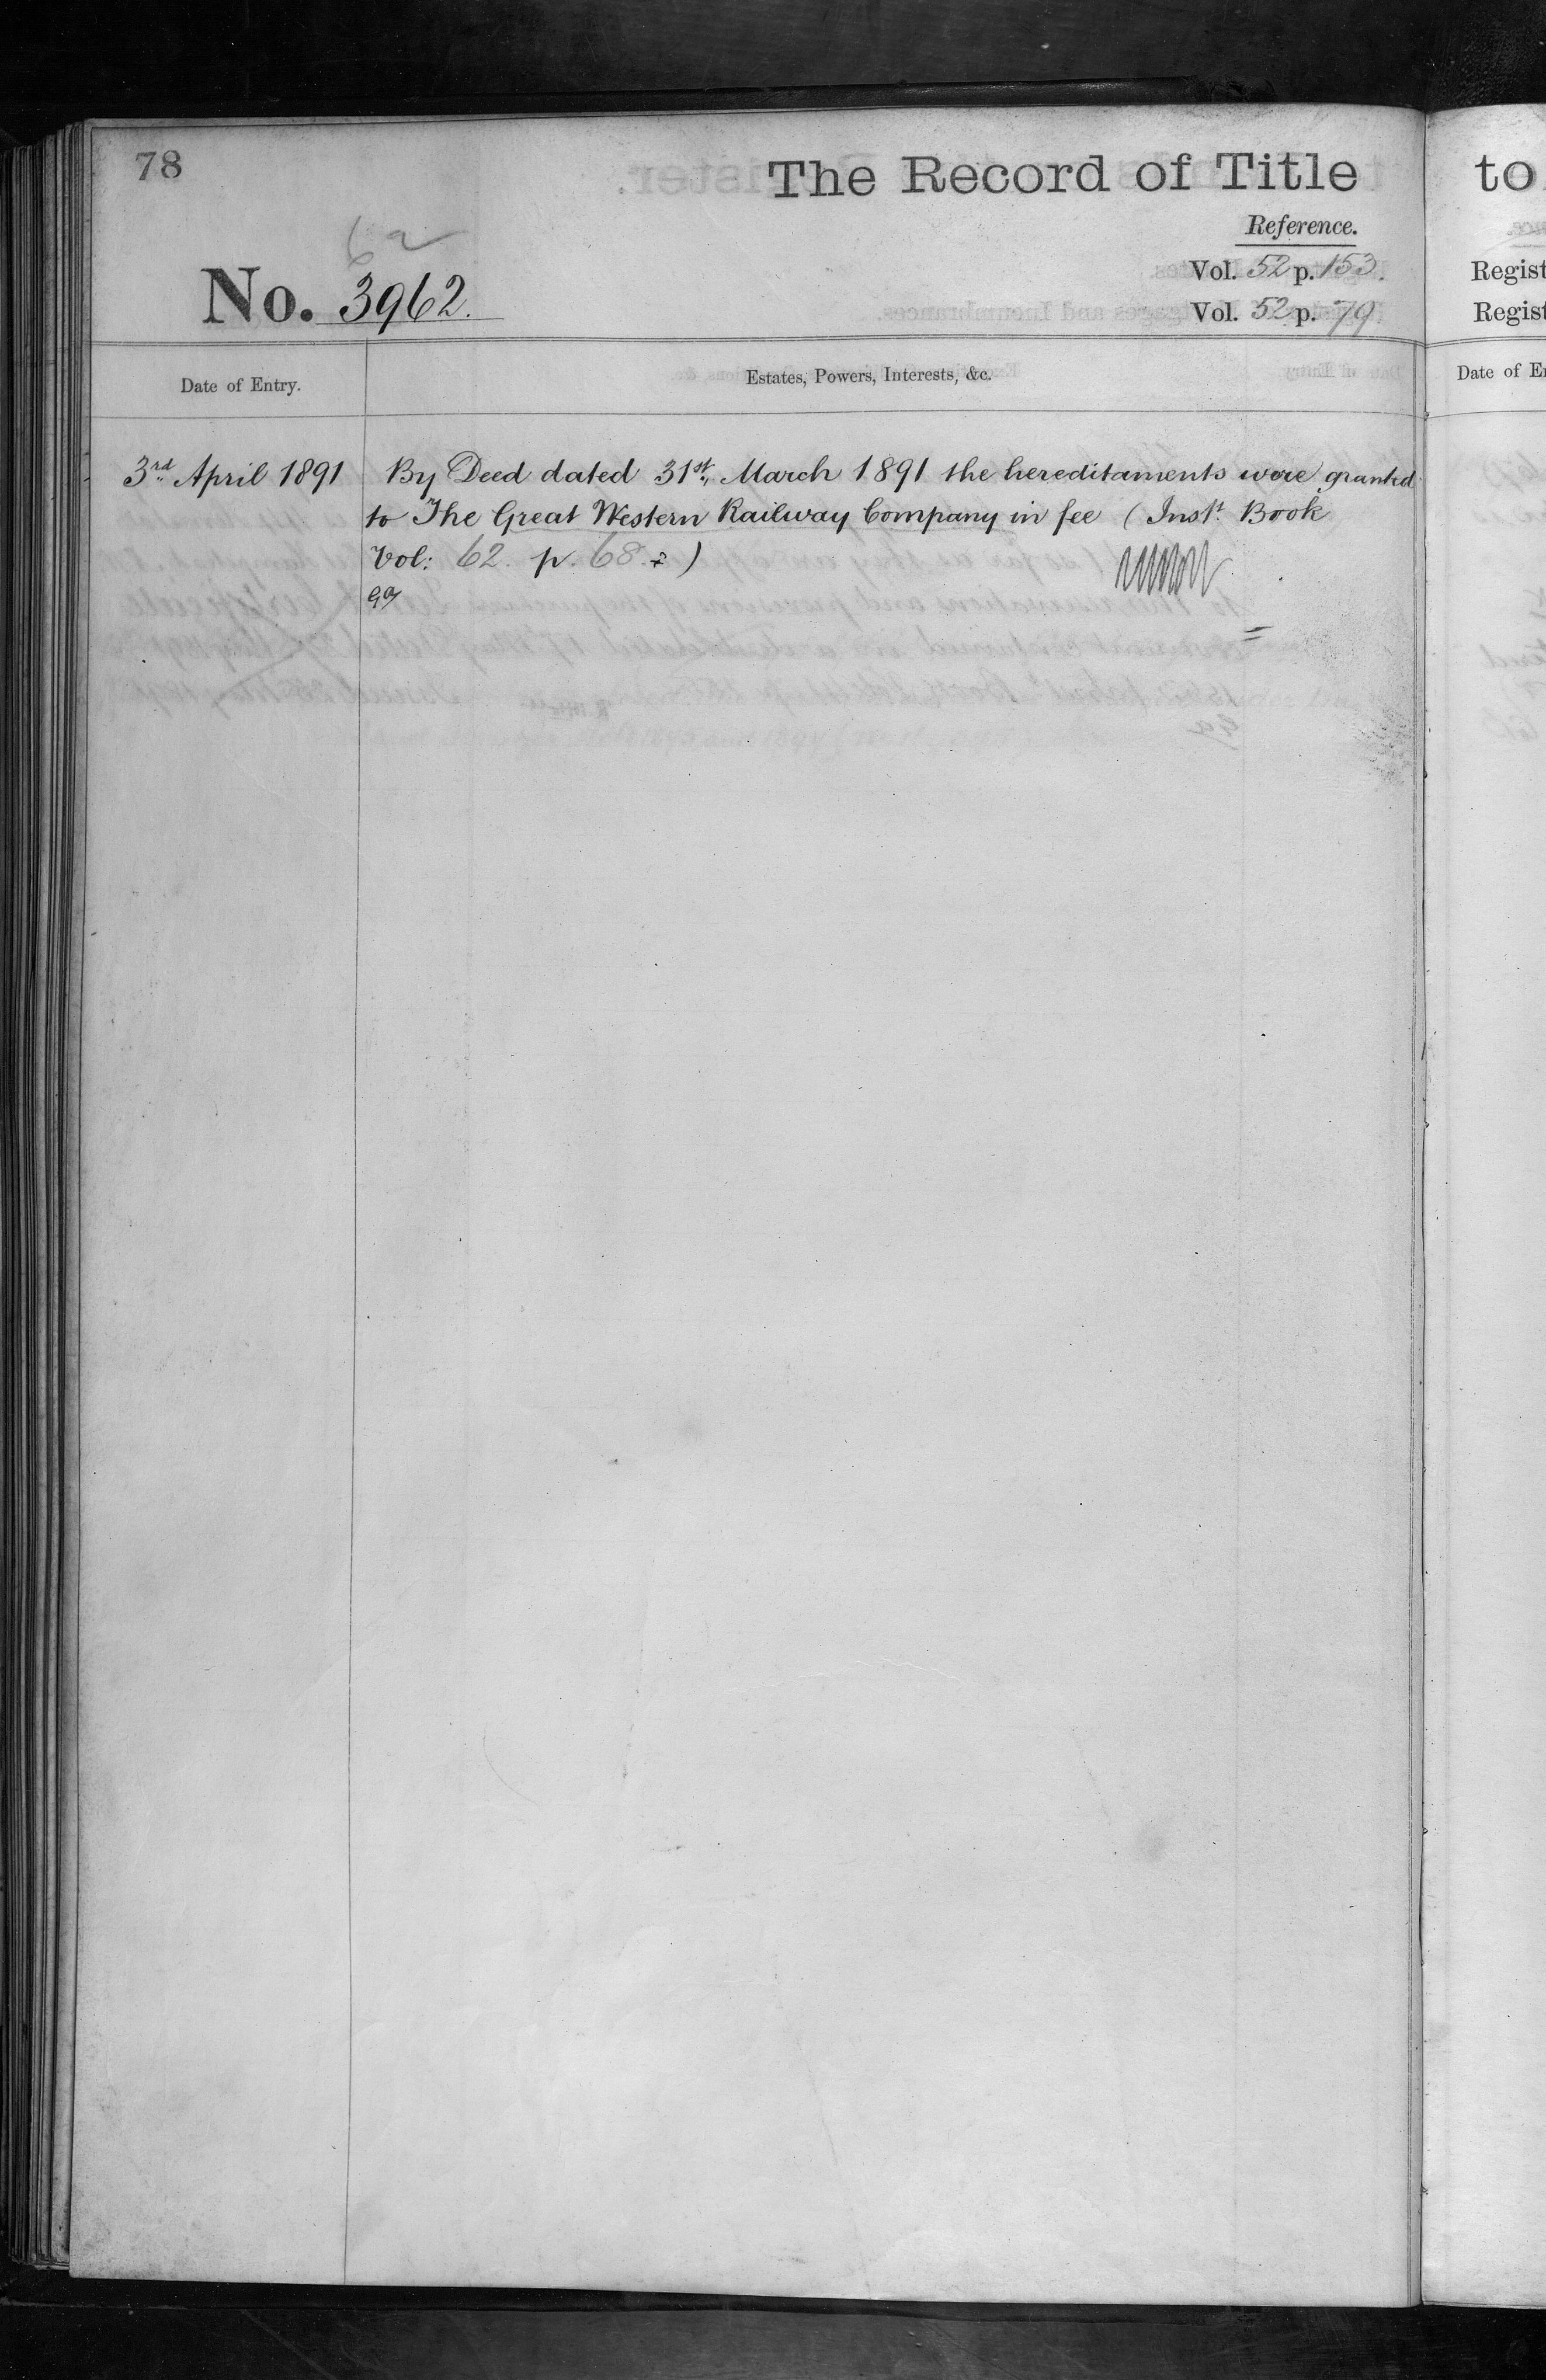 78
The Record of Title
Reference.
6a
No. 3962.
Vol. 52 p. 153.
Vol. 52 p. 79
Date of Entry.
Estates, Powers, Interests, &c.
3rd April 1891
By Deed dated 31st March 1891 the hereditaments were granted
to The Great Western Railway Company in fee (Inst. Book
Vol: 62. p. 68. )
to
Regist
Regist
Date of E